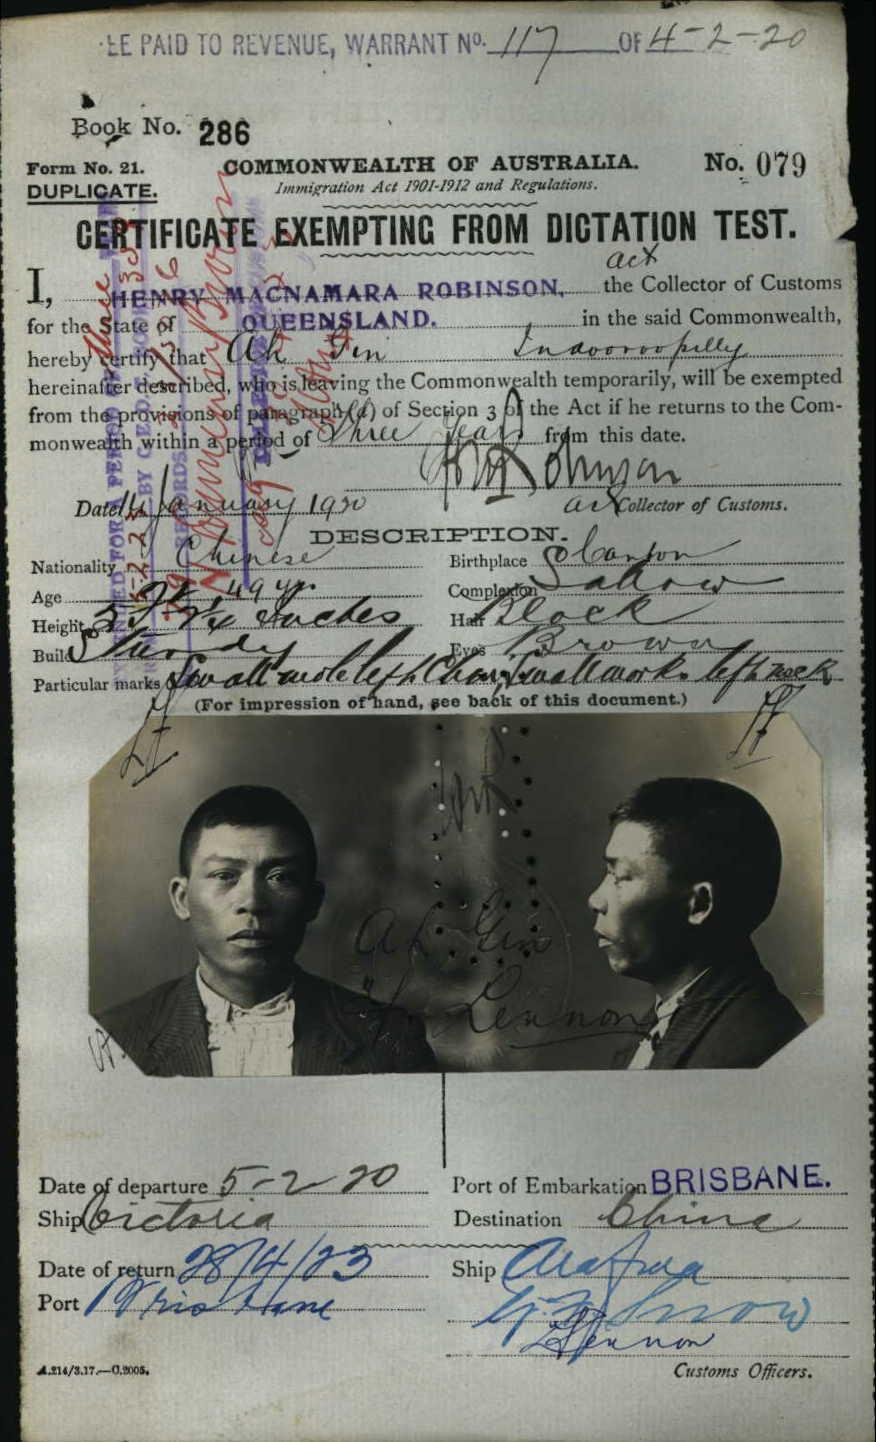 EE PAID TO REVENUE, WARRANT No. 117 OF 4-2-20
Book No. 286
Form No. 21. COMMONWEALTH OF AUSTRALIA. No. 079
DUPLICATE. Immigration Act 1901-1912 and Regulations.
CERTIFICATE EXEMPTING FROM DICTATION TEST.
act
I, HENRY MACNAMARA ROBINSON, the Collector of Customs
for the State of QUEENSLAND. in the said Commonwealth,
hereby certify that Ah Gin Indooroopilly
hereinafter described, who is leaving the Commonwealth temporarily, will be exempted
from the provisions of paragraph (a) of Section 3 of the Act if he returns to the Com-
monwealth within a period of Three years from this date.
Date 14 January 1920 act Collector of Customs.
DESCRIPTION.
Nationality Chinese Birthplace Canton
Age 49 yrs Complexion Sallow
Height 5 Ft Inches Hair Black
Build Sturdy Eyes Brown
Particular marks Small mole left Chin, Small mark left neck
(For impression of hand, see back of this document.)
Ah Gin
Lennon
Date of departure 5-2-20 Port of Embarkation BRISBANE.
Ship Victoria Destination China
Date of return 28/4/23 Ship Arafura
Port Brisbane Snow
Lennon
A.214/3.17.—C.2005. Customs Officers.